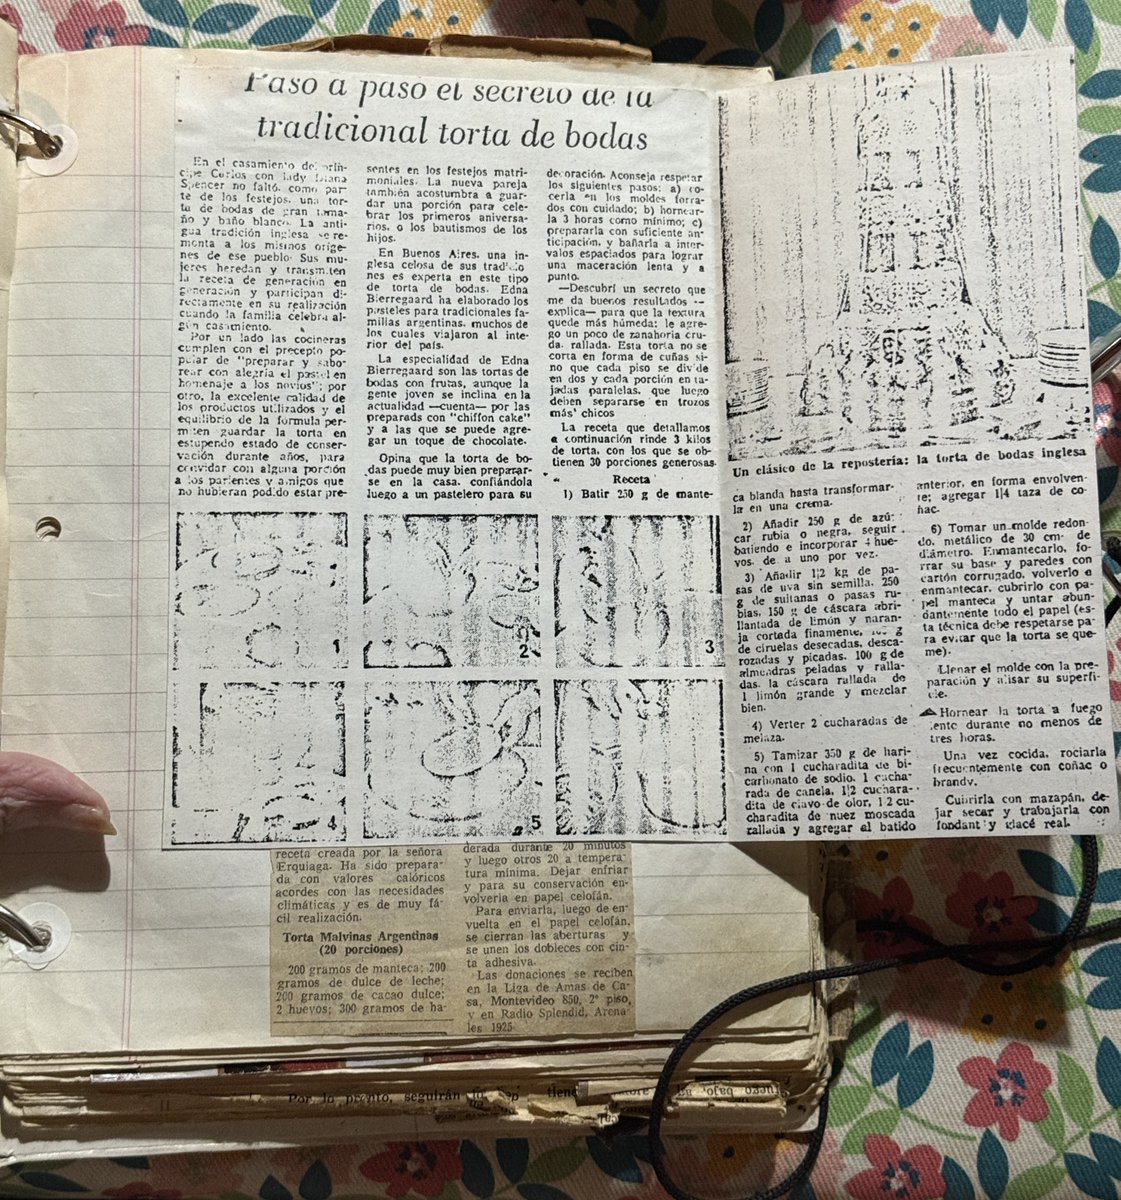 Paso a paso el secreto de la
tradicional torta de bodas
En el casamiento del prín-
cipe Carlos con lady Diana
Spencer no faltó, como par-
te de los festejos, una tor-
ta de bodas de gran tama-
ño y baño blanco. La anti-
gua tradición inglesa se re-
monta a los mismos oríge-
nes de ese pueblo. Sus mu-
jeres heredan y transmiten
la receta de generación en
generación y participan di-
rectamente en su realización
cuando la familia celebra al-
gún casamiento.
Por un lado las cocineras
cumplen con el precepto po-
pular de "preparar y sabo-
rear con alegría el pastel en
homenaje a los novios"; por
otro, la excelente calidad de
los productos utilizados y el
equilibrio de la fórmula per-
miten guardar la torta en
estupendo estado de conser-
vación durante años, para
convidar con alguna porción
a los parientes y amigos que
no hubieran podido estar pre-
sentes en los festejos matri-
moniales. La nueva pareja
también acostumbra a guar-
dar una porción para cele-
brar los primeros aniversa-
rios, o los bautismos de los
hijos.
En Buenos Aires, una in-
glesa celosa de sus tradicio-
nes es experta en este tipo
de torta de bodas. Edna
Bierregaard ha elaborado los
pasteles para tradicionales fa-
milias argentinas, muchos de
los cuales viajaron al inte-
rior del país.
La especialidad de Edna
Bierregaard son las tortas de
bodas con frutas, aunque la
gente joven se inclina en la
actualidad —cuenta— por las
preparads con "chiffon cake"
y a las que se puede agre-
gar un toque de chocolate.
Opina que la torta de bo-
das puede muy bien preparar-
se en la casa, confiándola
luego a un pastelero para su
decoración. Aconseja respetar
los siguientes pasos: a) co-
cerla en los moldes forra-
dos con cuidado; b) hornear-
la 3 horas como mínimo; c)
prepararla con suficiente an-
ticipación, y bañarla a inter-
valos espaciados para lograr
una maceración lenta y a
punto.
—Descubrí un secreto que
me da buenos resultados —
explica— para que la textura
quede más húmeda; le agre-
go un poco de zanahoria cru-
da, rallada. Esta torta no se
corta en forma de cuñas si-
no que cada piso se divide
en dos y cada porción en ta-
jadas paralelas, que luego
deben separarse en trozos
más' chicos
La receta que detallamos
a continuación rinde 3 kilos
de torta, con los que se ob-
tienen 30 porciones generosas.
Receta
1) Batir 250 g de mante-
1
2
3
4
5
Un clásico de la repostería: la torta de bodas inglesa
ca blanda hasta transformar-
la en una crema.
2) Añadir 250 g de azú-
car rubia o negra, seguir
batiendo e incorporar 4 hue-
vos, de a uno por vez.
3) Añadir 1/2 kg de pa-
sas de uva sin semilla, 250
g de sultanas o pasas ru-
bias, 150 g de cáscara abri-
llantada de limón y naran-
ja cortada finamente, g
de ciruelas desecadas, desca-
rozadas y picadas, 100 g de
almendras peladas y ralla-
das, la cáscara rallada de
1 limón grande y mezclar
bien.
4) Verter 2 cucharadas de
melaza.
5) Tamizar 350 g de hari-
na con 1 cucharadita de bi-
carbonato de sodio, 1 cucha-
rada de canela, 1/2 cuchara-
dita de clavo de olor, 1 2 cu-
charadita de nuez moscada
rallada y agregar al batido
anterior, en forma envolven-
te; agregar 1/4 taza de co-
ñac.
6) Tomar un molde redon-
do, metálico de 30 cm- de
diámetro. Enmantecarlo, fo-
rrar su base y paredes con
cartón corrugado, volverlo a
enmantecar, cubrirlo con pa-
pel manteca y untar abun-
dantemente todo el papel (es-
ta técnica debe respetarse pa-
ra evitar que la torta se que-
me).
Llenar el molde con la pre-
paración y alisar su superfi-
cie.
Hornear la torta a fuego
lente durante no menos de
tres horas.
Una vez cocida, rociarla
frecuentemente con coñac o
brandy.
Cubrirla con mazapán, de-
jar secar y trabajarla con
fondant y glacé real.
receta creada por la señora
Erquiaga. Ha sido prepara-
da con valores calóricos
acordes con las necesidades
climáticas y es de muy fá-
cil realización.
Torta Malvinas Argentinas
(20 porciones)
200 gramos de manteca; 200
gramos de dulce de leche;
200 gramos de cacao dulce;
2 huevos; 300 gramos de ha-
derada durante 20 minutos
y luego otros 20 a tempera-
tura mínima. Dejar enfriar
y para su conservación en-
volverla en papel celofán.
Para enviarla, luego de en-
vuelta en el papel celofán,
se cierran las aberturas y
se unen los dobleces con cin-
ta adhesiva.
Las donaciones se reciben
en la Liga de Amas de Ca-
sa, Montevideo 850, 2º piso,
y en Radio Splendid, Arena-
les 1925
Por lo pronto, seguirán